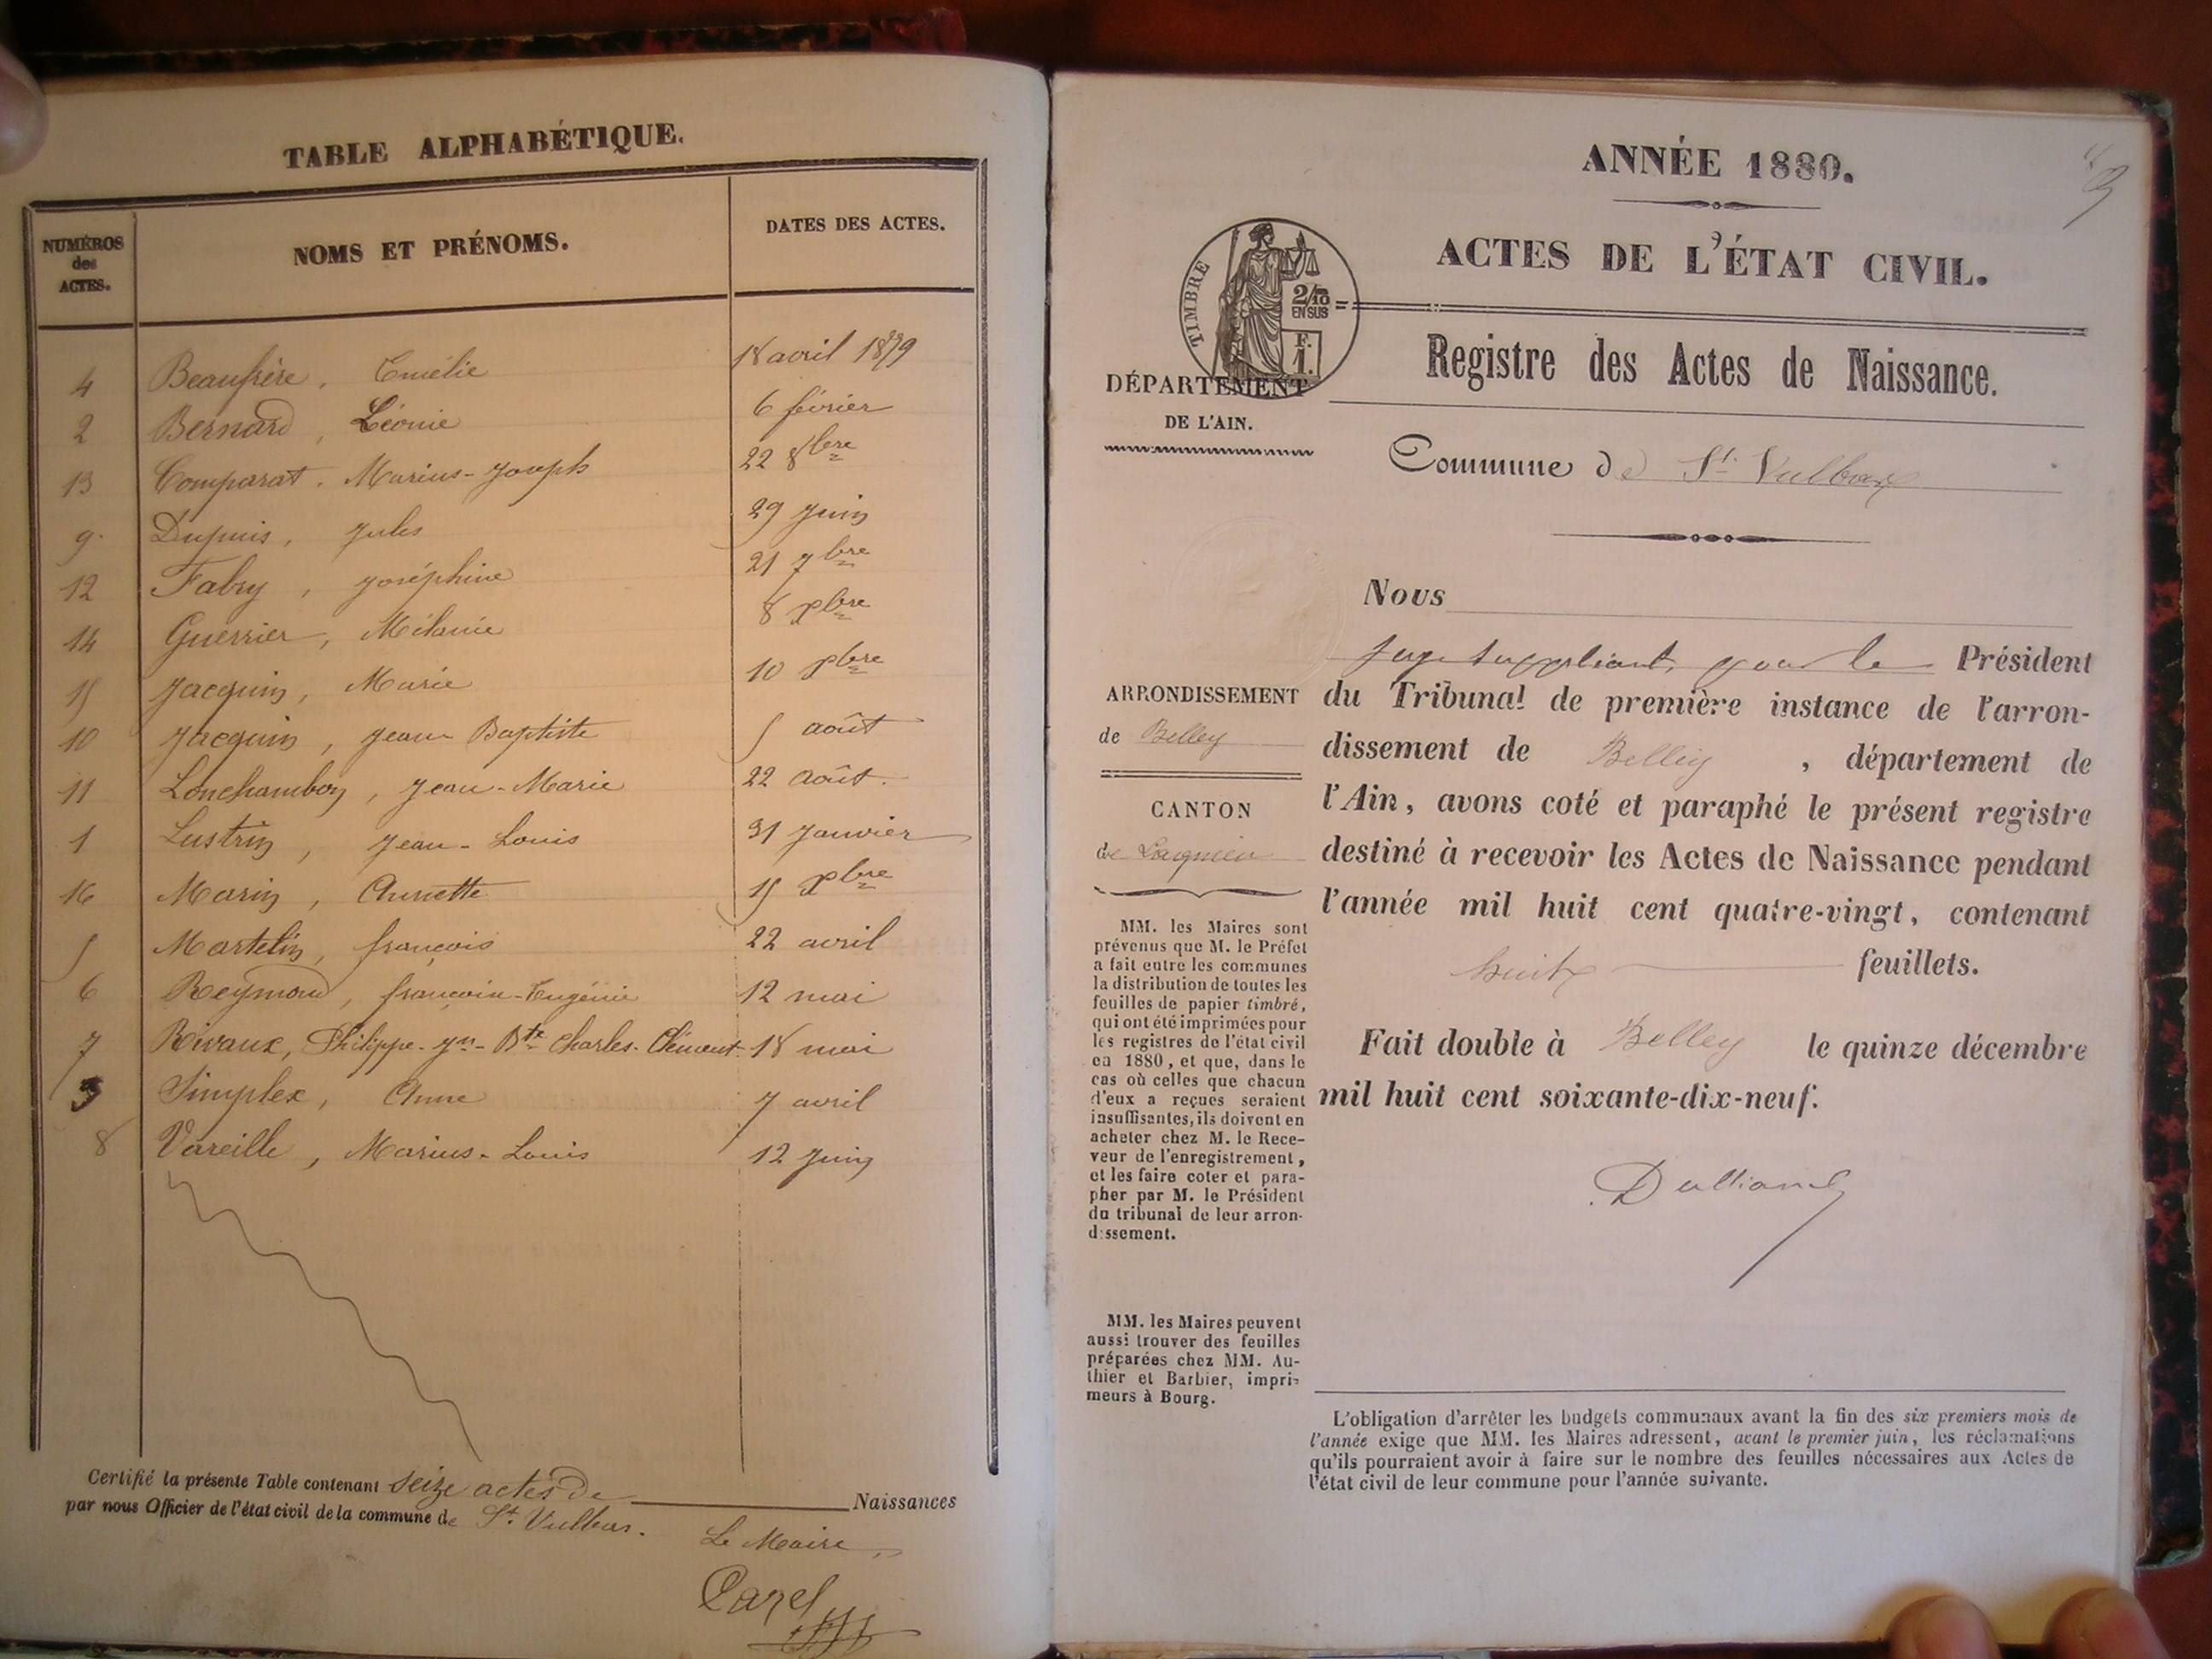 TABLE ALPHABÉTIQUE.
NUMÉROS
des
ACTES.
NOMS ET PRÉNOMS.
DATES DES ACTES.
4 Beaufrère, Emélie 18 avril 1879
2 Bernard, Léonie 6 février
13 Comparat, Marius-Joseph 22 8bre
9 Dupuis, Jules 29 Juin
12 Fabry, Joséphine 21 7bre
14 Guerrier, Mélanie 8 Xbre
15 Jacquin, Marie 10 Xbre
10 Jacquin, Jean-Baptiste 5 août
11 Lonchambon, Jean-Marie 22 août.
1 Lustrin, Jean-Louis 31 Janvier
16 Marin, Annette 15 Xbre
5 Martelin, françois 22 avril
6 Reymond, françois-Eugénie 12 mai
7 Rivaux, Philippe-Jn-Bte Charles-Clément 18 mai
3 Simplex, Anne 7 avril
8 Vareille, Marius-Louis 12 Juin
Certifié la présente Table contenant seize actes de Naissances
par nous Officier de l'état civil de la commune de St Vulbas.
Le Maire,
ANNÉE 1880.
ACTES DE L'ÉTAT CIVIL.
TIMBRE
2/10
EN SUS
F.
1.
Registre des Actes de Naissance.
DÉPARTEMENT
DE L'AIN.
Commune de St Vulbas
Nous
Juge suppléant, pour le Président
du Tribunal de première instance de l'arron-
dissement de Belley, département de
l'Ain, avons coté et paraphé le présent registre
destiné à recevoir les Actes de Naissance pendant
l'année mil huit cent quatre-vingt, contenant
huit feuillets.
Fait double à Belley le quinze décembre
mil huit cent soixante-dix-neuf.
ARRONDISSEMENT
de Belley
CANTON
de Lagnieu
MM. les Maires sont
prévenus que M. le Préfet
a fait entre les communes
la distribution de toutes les
feuilles de papier timbré,
qui ont été imprimées pour
les registres de l'état civil
en 1880, et que, dans le
cas où celles que chacun
d'eux a reçues seraient
insuffisantes, ils doivent en
acheter chez M. le Rece-
veur de l'enregistrement,
et les faire coter et para-
pher par M. le Président
du tribunal de leur arron-
dissement.
MM. les Maires peuvent
aussi trouver des feuilles
préparées chez MM. Au-
thier et Barbier, impri-
meurs à Bourg.
L'obligation d'arrêter les budgets communaux avant la fin des six premiers mois de
l'année exige que MM. les Maires adressent, avant le premier juin, les réclamations
qu'ils pourraient avoir à faire sur le nombre des feuilles nécessaires aux Actes de
l'état civil de leur commune pour l'année suivante.